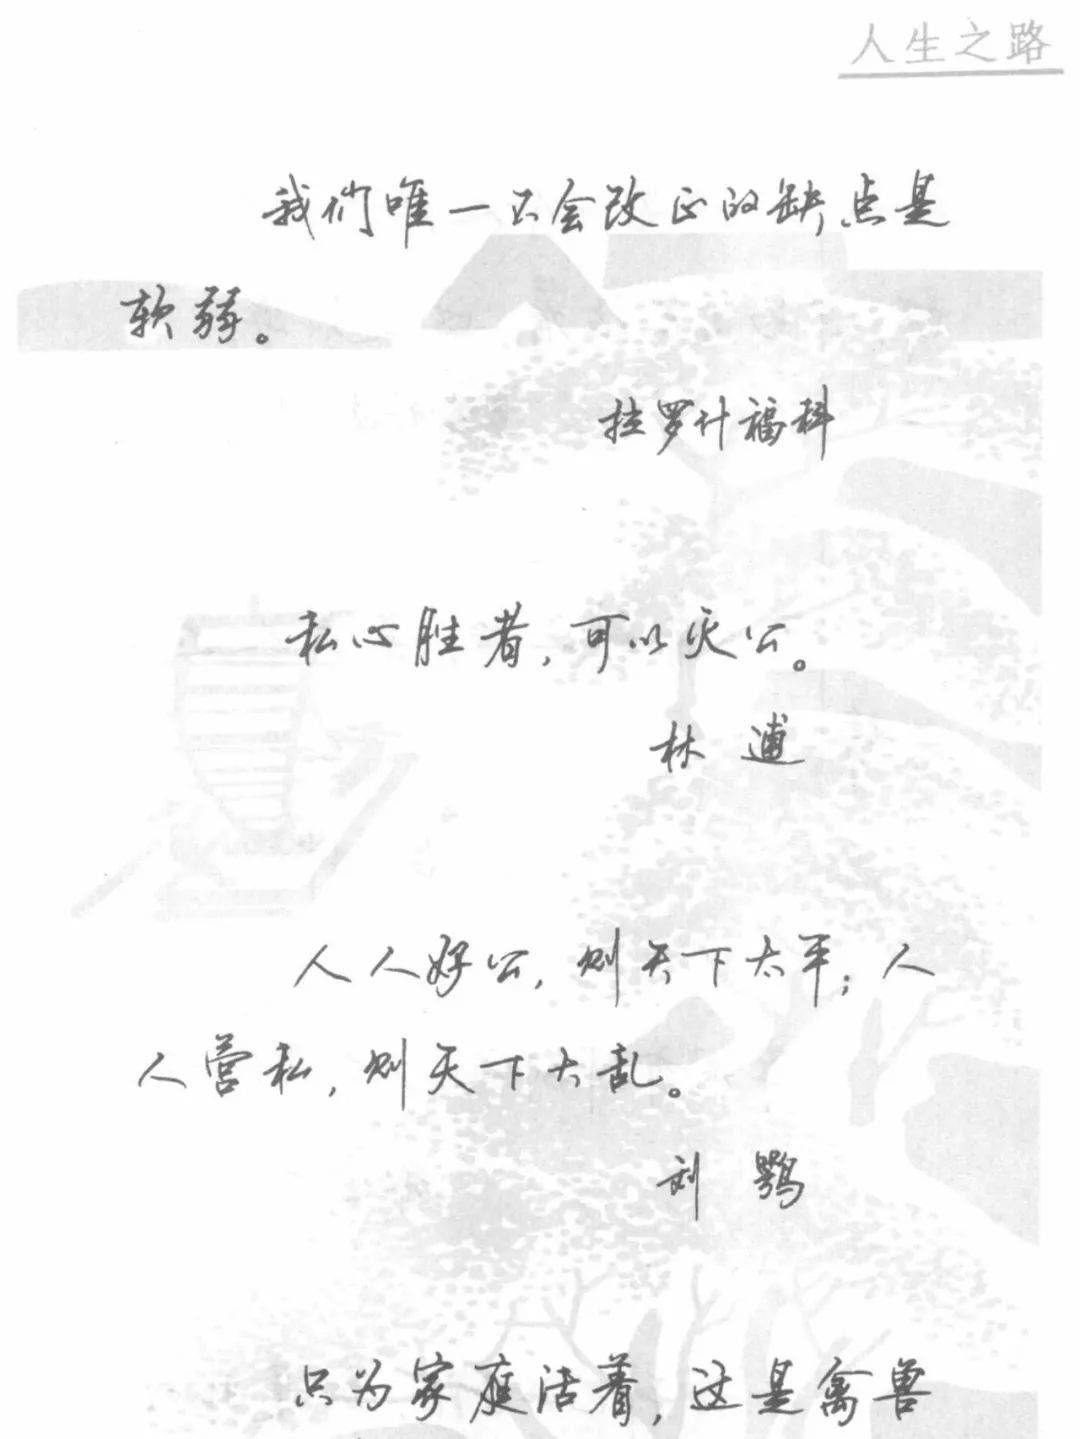 人生之路
我们唯一不会改正的缺点是
软弱。
拉罗什福科
私心胜者，可以灭公。
林逋
人人好公，则天下太平；人
人营私，则天下大乱。
刘鹗
只为家庭活着，这是禽兽